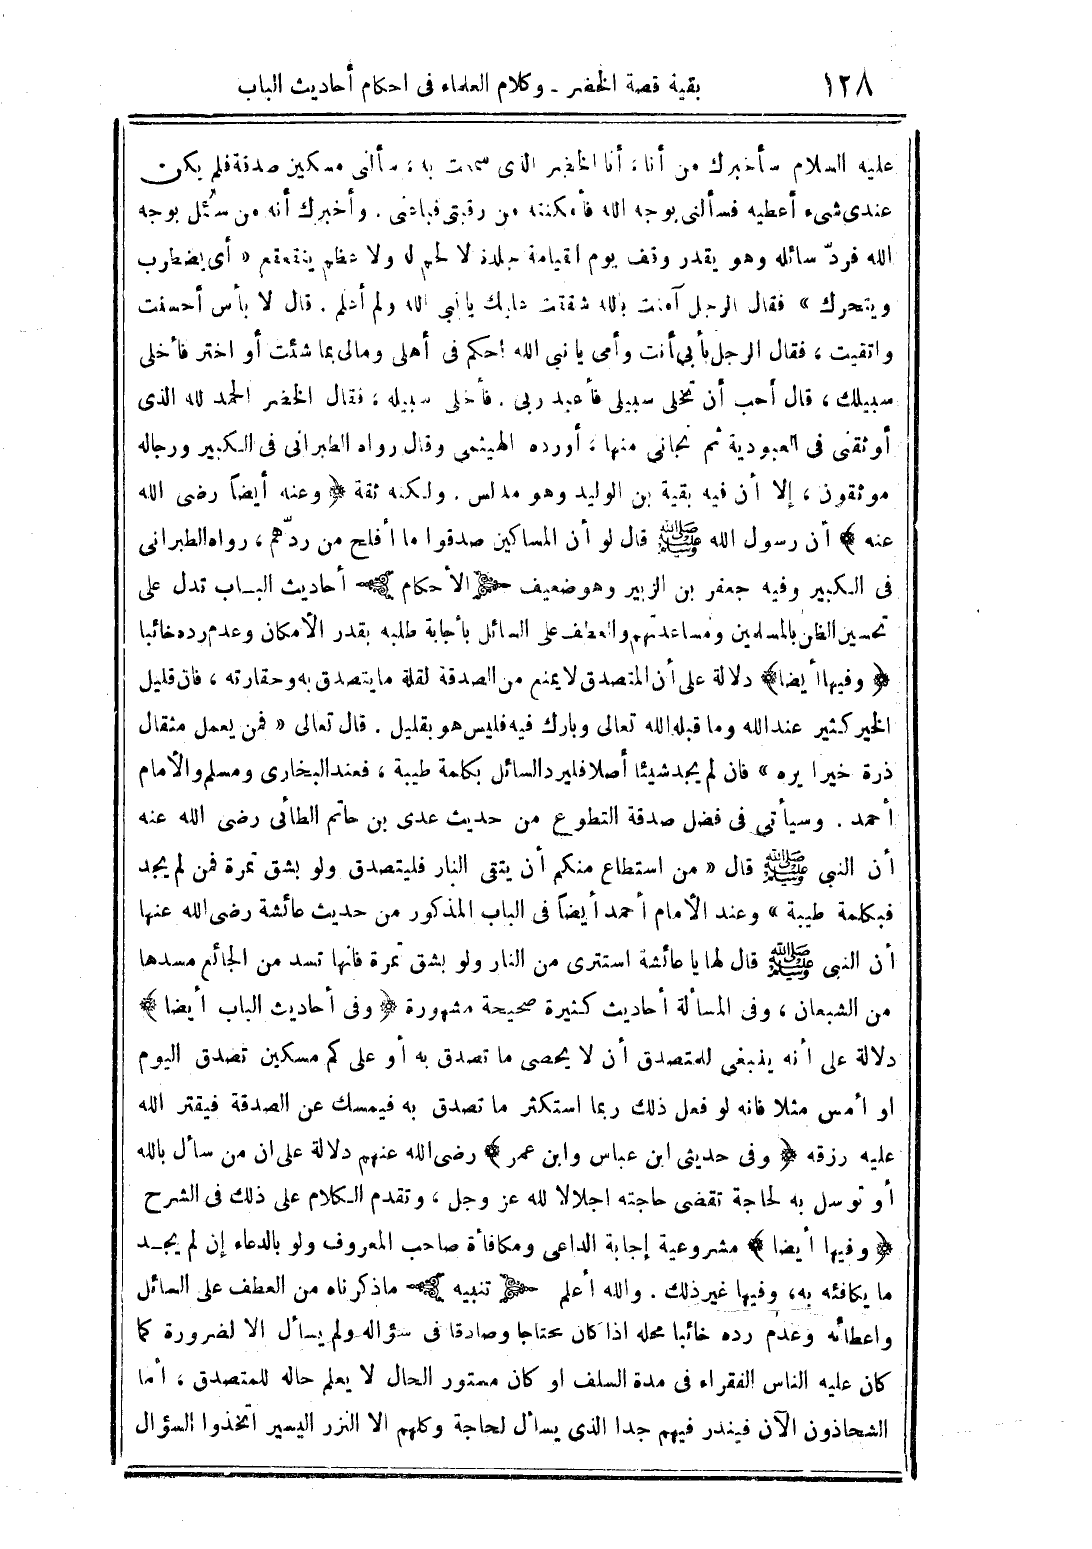 ١٢٨ بقية قصة الخضر - وكلام العلماء فى احكام أحاديث الباب
عليه السلام سأخبرك من أنا، أنا الخضر الذى سمعت به، سألنى مسكين صدقة فلم يكن
عندى شىء أعطيه فسألنى بوجه الله فأمكنته من رقبتى فباعنى . وأخبرك أنه من سئل بوجه
الله فردّ سائله وهو يقدر وقف يوم القيامة جلدة لا لحم له ولا عظم يتقعقع « أى يضطرب
ويتحرك » فقال الرجل آمنت بالله شققت عليك يا نبى الله ولم أعلم . قال لا بأس أحسنت
واتقيت ، فقال الرجل بأبى أنت وأمى يا نبى الله احكم فى أهلى ومالى بما شئت أو اختر فأخلى
سبيلك ، قال أحب أن تخلى سبيلى فأعبد ربى . فأخلى سبيله ، فقال الخضر الحمد لله الذى
أوثقنى فى العبودية ثم نجانى منها ، أورده الهيثمى وقال رواه الطبرانى فى الكبير ورجاله
موثقون ، إلا أن فيه بقية بن الوليد وهو مدلس . ولكنه ثقة ﴿ وعنه أيضاً رضى الله
عنه ﴾ أن رسول الله ﷺ قال لو أن المساكين صدقوا ما أفلح من ردّهم ، رواه الطبرانى
فى الكبير وفيه جعفر بن الزبير وهو ضعيف الأحكام أحاديث الباب تدل على
تحسين الظن بالمسلمين ومساعدتهم والعطف على السائل بأجابة طلبه بقدر الأمكان وعدم رده خائبا
﴿ وفيها أيضا ﴾ دلالة على أن المتصدق لا يمنع من الصدقة لقلة ما يتصدق به وحقارته ، فان قليل
الخير كثير عند الله وما قبله الله تعالى وبارك فيه فليس هو بقليل . قال تعالى « فمن يعمل مثقال
ذرة خيرا يره » فان لم يجد شيئا أصلا فليرد السائل بكلمة طيبة ، فعند البخارى ومسلم والأمام
أحمد . وسيأتى فى فضل صدقة التطوع من حديث عدى بن حاتم الطائى رضى الله عنه
أن النبى ﷺ قال « من استطاع منكم أن يتقى النار فليتصدق ولو بشق تمرة فمن لم يجد
فبكلمة طيبة » وعند الأمام أحمد أيضاً فى الباب المذكور من حديث عائشة رضى الله عنها
أن النبى ﷺ قال لها يا عائشة استترى من النار ولو بشق تمرة فانها تسد من الجائع مسدها
من الشبعان ، وفى المسألة أحاديث كثيرة صحيحة مشهورة ﴿ وفى أحاديث الباب أيضا ﴾
دلالة على أنه ينبغى للمتصدق أن لا يحصى ما تصدق به أو على كم مسكين تصدق اليوم
او أمس مثلا فانه لو فعل ذلك ربما استكثر ما تصدق به فيمسك عن الصدقة فيقتر الله
عليه رزقه ﴿ وفى حديثى ابن عباس وابن عمر ﴾ رضى الله عنهم دلالة على ان من سأل بالله
أو توسل به لحاجة تقضى حاجته اجلالا لله عز وجل ، وتقدم الكلام على ذلك فى الشرح
﴿ وفيها أيضا ﴾ مشروعية إجابة الداعى ومكافأة صاحب المعروف ولو بالدعاء إن لم يجد
ما يكافئه به، وفيها غير ذلك . والله أعلم تنبيه ماذكرناه من العطف على السائل
واعطائه وعدم رده خائبا محله اذا كان محتاجا وصادقا فى سؤاله ولم يسأل الا لضرورة كما
كان عليه الناس الفقراء فى مدة السلف او كان مستور الحال لا يعلم حاله للمتصدق ، أما
الشحاذون الآن فيندر فيهم جدا الذى يسأل لحاجة وكلهم الا النزر اليسير اتخذوا السؤال